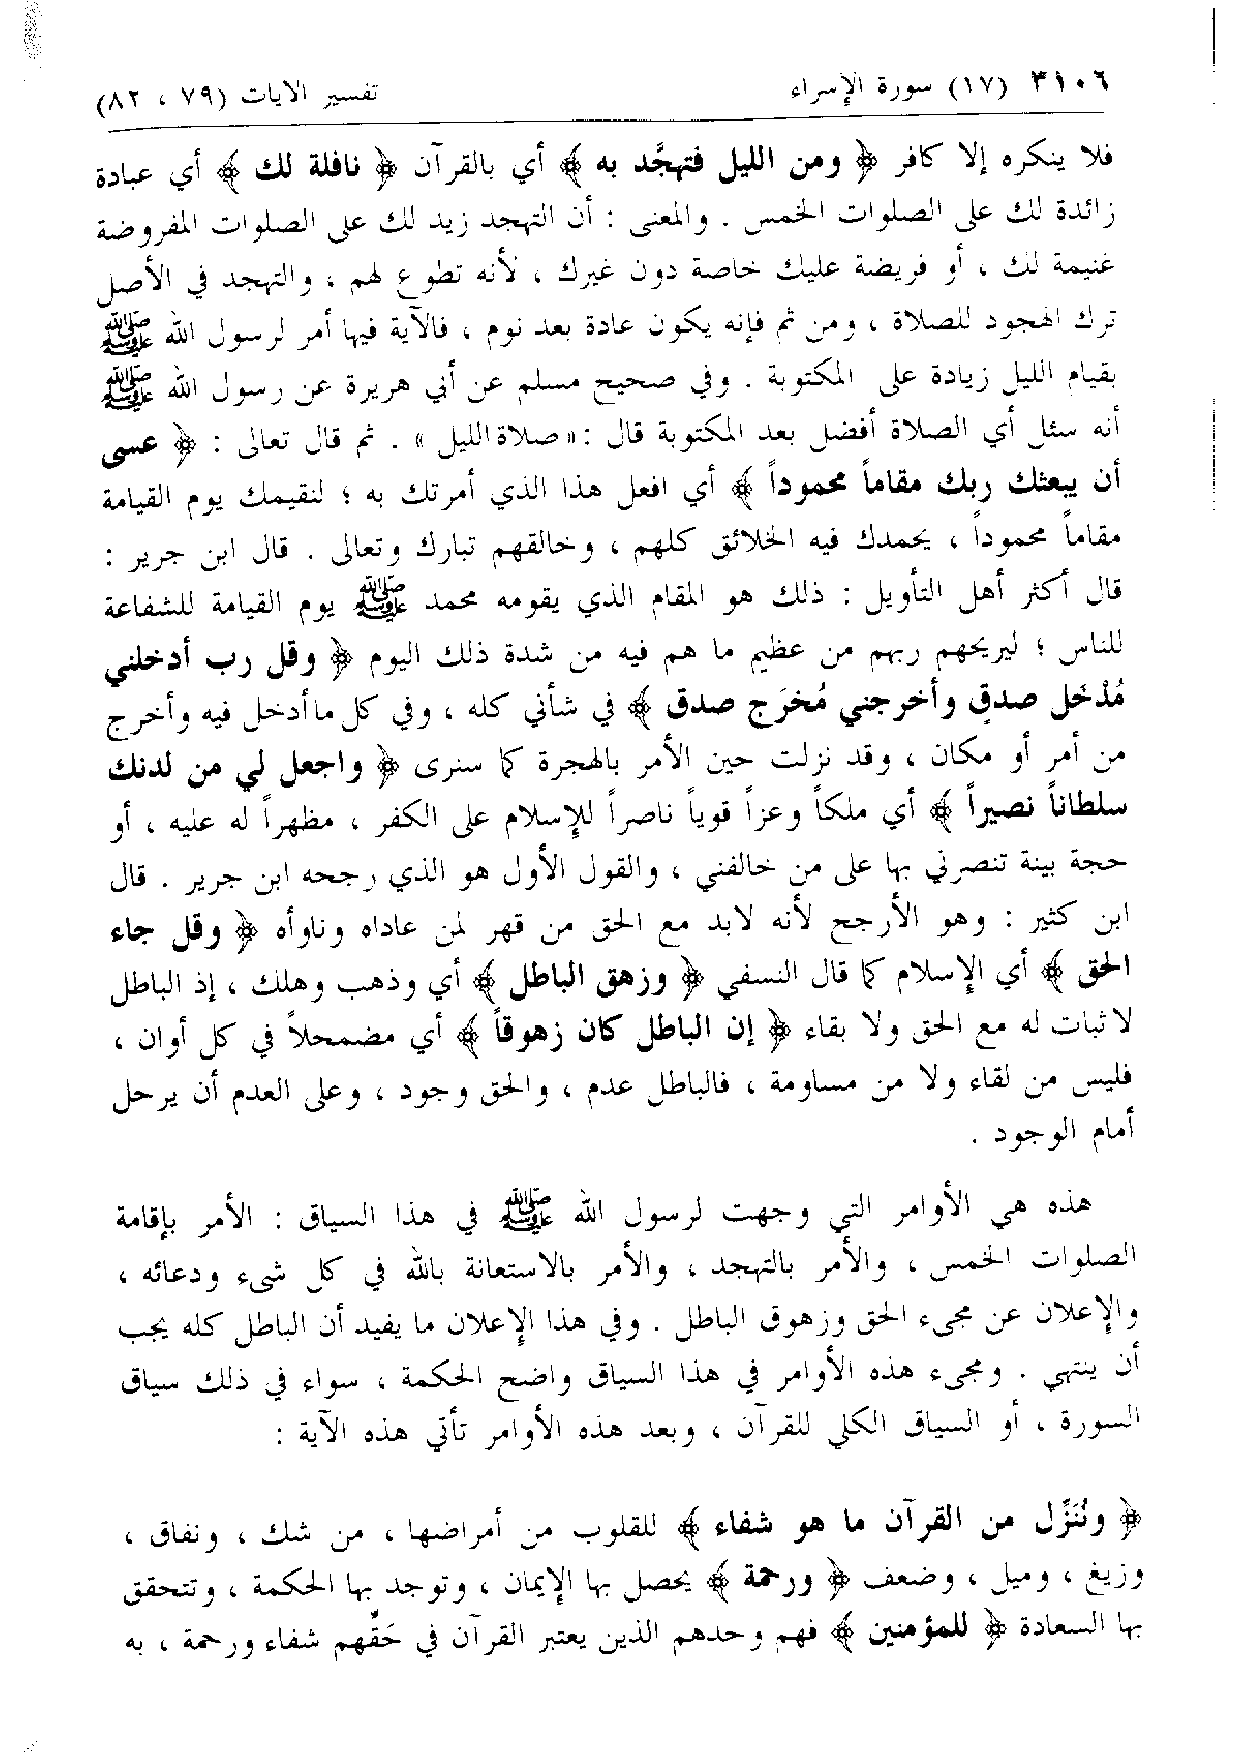 ٣١٠٦ (١٧) سورة الإسراء تفسير الآيات (٧٩ ، ٨٢)
فلا ينكره إلا كافر ﴿ ومن الليل فتهجَّد به ﴾ أي بالقرآن ﴿ نافلة لك ﴾ أي عبادة
زائدة لك على الصلوات الخمس . والمعنى : أن التهجد زيد لك على الصلوات المفروضة
غنيمة لك ، أو فريضة عليك خاصة دون غيرك ، لأنه تطوع لهم ، والتهجد في الأصل
ترك الهجود للصلاة ، ومن ثم فإنه يكون عادة بعد نوم ، فالآية فيها أمر لرسول الله ﷺ
بقيام الليل زيادة على المكتوبة . وفي صحيح مسلم عن أبي هريرة عن رسول الله ﷺ
أنه سئل أي الصلاة أفضل بعد المكتوبة قال : « صلاة الليل » . ثم قال تعالى : ﴿ عسى
أن يبعثك ربك مقاماً محموداً ﴾ أي افعل هذا الذي أمرتك به ؛ لنقيمك يوم القيامة
مقاماً محموداً ، يحمدك فيه الخلائق كلهم ، وخالقهم تبارك وتعالى . قال ابن جرير :
قال أكثر أهل التأويل : ذلك هو المقام الذي يقومه محمد ﷺ يوم القيامة للشفاعة
للناس ؛ ليريحهم ربهم من عظيم ما هم فيه من شدة ذلك اليوم ﴿ وقل رب أدخلني
مُدْخَل صدقٍ وأخرجني مُخرَج صدق ﴾ في شأني كله ، وفي كل ما أدخل فيه وأخرج
من أمر أو مكان ، وقد نزلت حين الأمر بالهجرة كما سنرى ﴿ واجعل لي من لدنك
سلطاناً نصيراً ﴾ أي ملكاً وعزاً قوياً ناصراً للإسلام على الكفر ، مظهراً له عليه ، أو
حجة بينة تنصرني بها على من خالفني ، والقول الأول هو الذي رجحه ابن جرير . قال
ابن كثير : وهو الأرجح لأنه لابد مع الحق من قهر لمن عاداه وناوأه ﴿ وقل جاء
الحق ﴾ أي الإسلام كما قال النسفي ﴿ وزهق الباطل ﴾ أي وذهب وهلك ، إذ الباطل
لا ثبات له مع الحق ولا بقاء ﴿ إن الباطل كان زهوقاً ﴾ أي مضمحلاً في كل أوان ،
فليس من لقاء ولا من مساومة ، فالباطل عدم ، والحق وجود ، وعلى العدم أن يرحل
أمام الوجود .
هذه هي الأوامر التي وجهت لرسول الله ﷺ في هذا السياق : الأمر بإقامة
الصلوات الخمس ، والأمر بالتهجد ، والأمر بالاستعانة بالله في كل شيء ودعائه ،
والإعلان عن مجيء الحق وزهوق الباطل . وفي هذا الإعلان ما يفيد أن الباطل كله يجب
أن ينتهي . ومجيء هذه الأوامر في هذا السياق واضح الحكمة ، سواء في ذلك سياق
السورة ، أو السياق الكلي للقرآن ، وبعد هذه الأوامر تأتي هذه الآية :
﴿ ونُنَزِّل من القرآن ما هو شفاء ﴾ للقلوب من أمراضها ، من شك ، ونفاق ،
وزيغ ، وميل ، وضعف ﴿ ورحمة ﴾ يحصل بها الإيمان ، وتوجد بها الحكمة ، وتتحقق
بها السعادة ﴿ للمؤمنين ﴾ فهم وحدهم الذين يعتبر القرآن في حَقِّهم شفاء ورحمة ، به